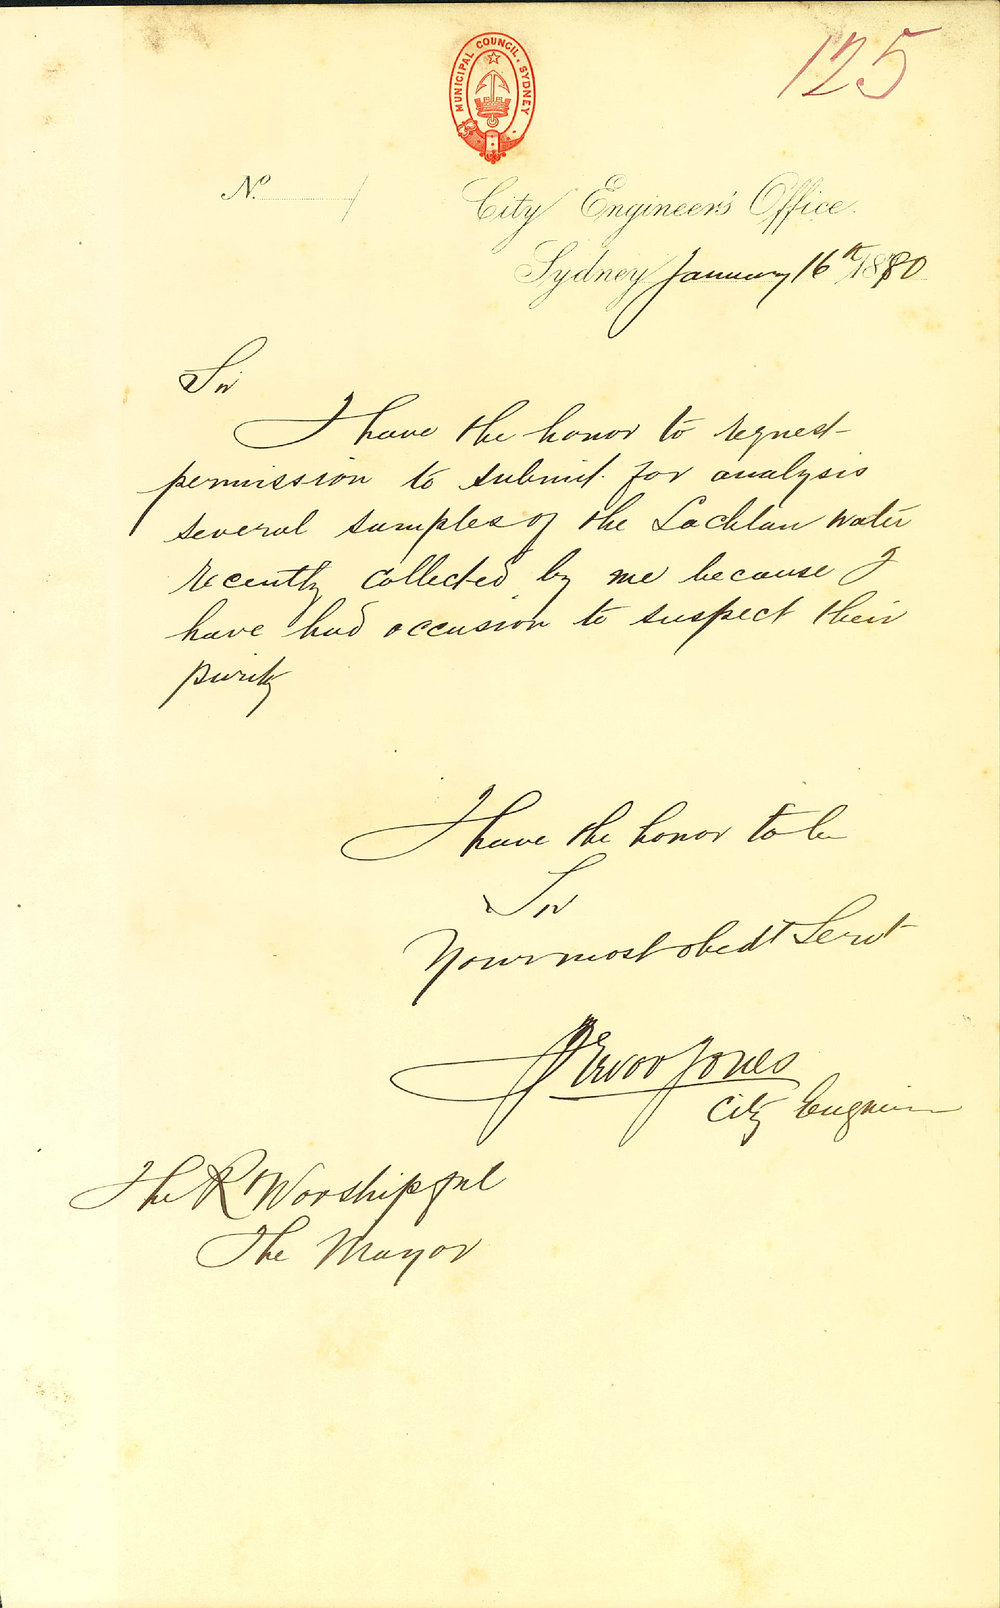 125
MUNICIPAL COUNCIL. SYDNEY
No.
City Engineer's Office.
Sydney January 16th 1880
Sir
I have the honor to request
permission to submit for analysis
several samples of the Lachlan water
recently collected by me because I
have had occasion to suspect their
purity
I have the honor to be
Sir
Your most obedt Servt
Trevor Jones
City Engineer
The Rt Worshipful
The Mayor